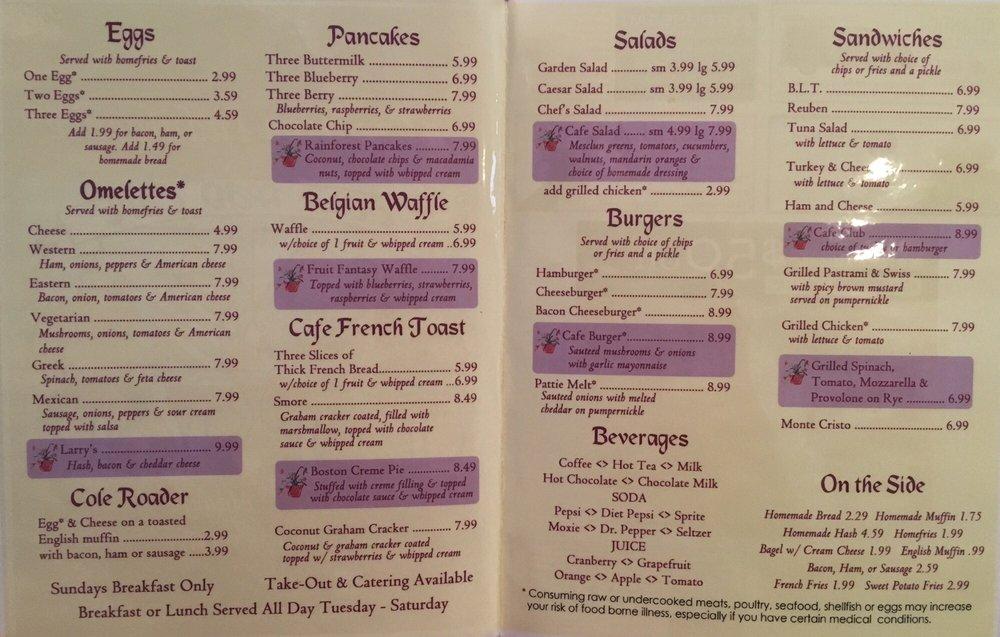 Eggs
Served with homefries & toast
One Egg* ........ 2.99
Two Eggs* ........ 3.59
Three Eggs* ........ 4.59
Add 1.99 for bacon, ham, or
sausage. Add 1.49 for
homemade bread
Omelettes*
Served with homefries & toast
Cheese ........ 4.99
Western ........ 7.99
Ham, onions, peppers & American cheese
Eastern ........ 7.99
Bacon, onion, tomatoes & American cheese
Vegetarian ........ 7.99
Mushrooms, onions, tomatoes & American
cheese
Greek ........ 7.99
Spinach, tomatoes & feta cheese
Mexican ........ 7.99
Sausage, onions, peppers & sour cream
topped with salsa
Larry's ........ 9.99
Hash, bacon & cheddar cheese
Cole Roader
Egg* & Cheese on a toasted
English muffin ........ 2.99
with bacon, ham or sausage ..... 3.99
Sundays Breakfast Only
Pancakes
Three Buttermilk ........ 5.99
Three Blueberry ........ 6.99
Three Berry ........ 7.99
Blueberries, raspberries, & strawberries
Chocolate Chip ........ 6.99
Rainforest Pancakes ........ 7.99
Coconut, chocolate chips & macadamia
nuts, topped with whipped cream
Belgian Waffle
Waffle ........ 5.99
w/choice of 1 fruit & whipped cream ..6.99
Fruit Fantasy Waffle ........ 7.99
Topped with blueberries, strawberries,
raspberries & whipped cream
Cafe French Toast
Three Slices of
Thick French Bread........ 5.99
w/choice of 1 fruit & whipped cream ...6.99
Smore ........ 8.49
Graham cracker coated, filled with
marshmallow, topped with chocolate
sauce & whipped cream
Boston Creme Pie ........ 8.49
Stuffed with creme filling & topped
with chocolate sauce & whipped cream
Coconut Graham Cracker ........ 7.99
Coconut & graham cracker coated
topped w/ strawberries & whipped cream
Take-Out & Catering Available
Breakfast or Lunch Served All Day Tuesday - Saturday
Salads
Garden Salad ........ sm 3.99 lg 5.99
Caesar Salad ........ sm 3.99 lg 5.99
Chef's Salad ........ 7.99
Cafe Salad ...... sm 4.99 lg 7.99
Mesclun greens, tomatoes, cucumbers,
walnuts, mandarin oranges &
choice of homemade dressing
add grilled chicken* ........ 2.99
Burgers
Served with choice of chips
or fries and a pickle
Hamburger* ........ 6.99
Cheeseburger* ........ 7.99
Bacon Cheeseburger* ........ 8.99
Cafe Burger* ........ 8.99
Sauted mushrooms & onions
with garlic mayonnaise
Pattie Melt* ........ 8.99
Sauted onions with melted
cheddar on pumpernickle
Beverages
Coffee <> Hot Tea <> Milk
Hot Chocolate <> Chocolate Milk
SODA
Pepsi <> Diet Pepsi <> Sprite
Moxie <> Dr. Pepper <> Seltzer
JUICE
Cranberry <> Grapefruit
Orange <> Apple <> Tomato
Sandwiches
Served with choice of
chips or fries and a pickle
B.L.T. ........ 6.99
Reuben ........ 7.99
Tuna Salad ........ 6.99
with lettuce & tomato
Turkey & Cheese ........ 6.99
with lettuce & tomato
Ham and Cheese ........ 5.99
Cafe Club ........ 8.99
choice of or hamburger
Grilled Pastrami & Swiss ........ 7.99
with spicy brown mustard
served on pumpernickle
Grilled Chicken* ........ 7.99
with lettuce & tomato
Grilled Spinach,
Tomato, Mozzarella &
Provolone on Rye ........ 6.99
Monte Cristo ........ 6.99
On the Side
Homemade Bread 2.29 Homemade Muffin 1.75
Homemade Hash 4.59 Homefries 1.99
Bagel w/ Cream Cheese 1.99 English Muffin .99
Bacon, Ham, or Sausage 2.59
French Fries 1.99 Sweet Potato Fries 2.99
* Consuming raw or undercooked meats, poultry, seafood, shellfish or eggs may increase
your risk of food borne illness, especially if you have certain medical conditions.